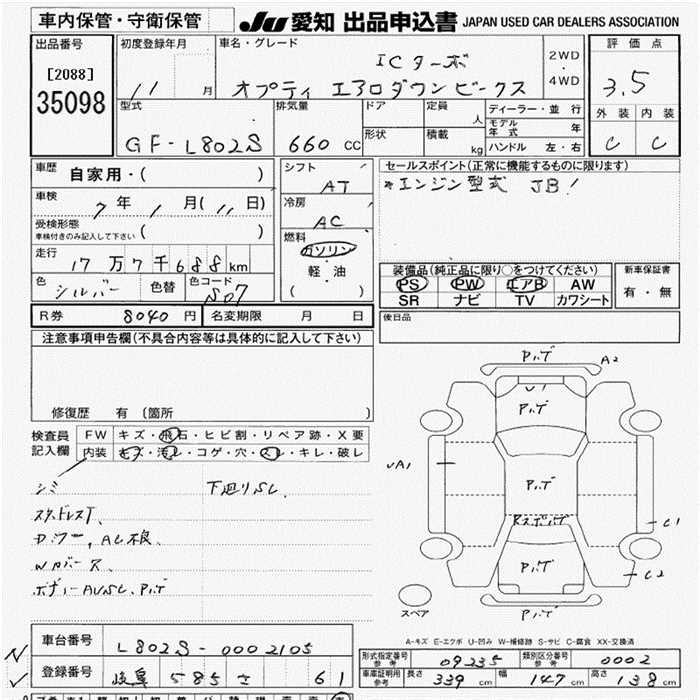 車内保管・守衛保管
JU 愛知 出品申込書 JAPAN USED CAR DEALERS ASSOCIATION
出品番号
[2088]
35098
初度登録年月
11 月
車名・グレード
ICターボ
オプティ エアロダウンビークス
2WD
4WD
評価点
3.5
外装 内装
C C
型式
GF-L802S
排気量
660 CC
ドア
形状
定員 人
積載 kg
ディーラー・並行
モデル年式 年
ハンドル 左・右
車歴 自家用・( )
車検 7年 1月(11日)
受検形態
車検付きのみ記入して下さい ( )
走行 17万7千688km
色 シルバー 色替 色コード S07
シフト
AT
冷房
AC
燃料
ガソリン
軽・油
( )
セールスポイント(正常に機能するものに限ります)
*エンジン型式 JB!
装備品(純正品に限り○をつけてください)
PS PW エアB AW
SR ナビ TV カワシート
新車保証書
有・無
R券 8040円 名変期限 月 日
後日品
注意事項申告欄(不具合内容等は具体的に記入して下さい)
修復歴 有 (箇所 )
検査員記入欄
FW キズ・飛石・ヒビ割・リペア跡・X要
内装 キズ・汚レ・コゲ・穴・スレ・キレ・破レ
シミ 下廻りSL.
スタッドレスT、
AC不良、
Wカバー
ボディーAUSL.
A2
U1
UA1
C1
C2
スペア
A-キズ E-エクボ U-凹み W-補修跡 S-サビ C-腐食 XX-交換済
車台番号 L802S-0002105
登録番号 岐阜 585 さ 61
形式指定番号 参考 09235 類別区分番号 参考 0002
車庫証明用参考 長さ 339 cm 幅 147 cm 高さ 138 cm